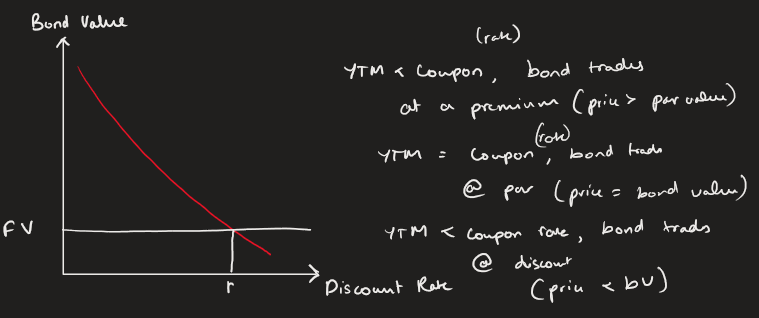 Bond Value
FV
r
Discount Rate
(rate)
YTM < Coupon, bond trades
at a premium (price > par value)
(rate)
YTM = Coupon, bond trades
@ par (price = bond value)
YTM < coupon rate, bond trades
@ discount
(price < bV)